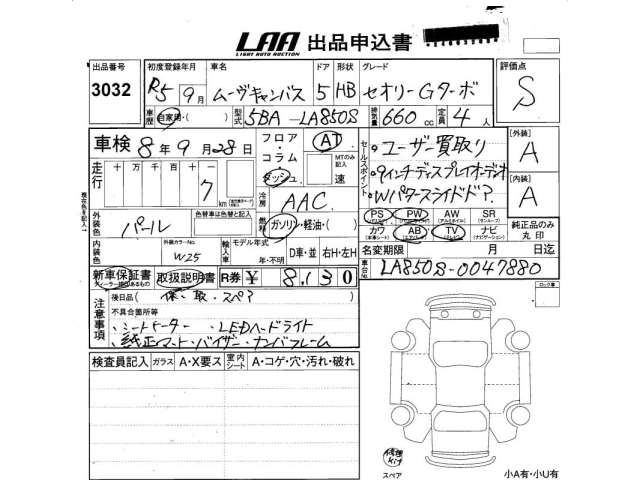 LAA 出品申込書
LIGHT AUTO AUCTION
出品番号 初度登録年月 車名 ドア 形状 グレード 評価点
3032 R5 9月 ムーヴキャンバス 5 HB セオリーGターボ S
車歴 自家用・( ) 型式 5BA-LA850S 排気量 660 cc 定員 4 人
車検 8年9月28日 フロア・コラム・ダッシュ AT MTのみ記入 速
走行 十万 万 千 百 十 一 7 km
冷房 AAC
燃料 ガソリン・軽油・( )
セールスポイント
ユーザー買取り
9インチディスプレイオーディオ
Wパワースライドドア
PS PW AW SR
カワ AB TV ナビ
純正品のみ丸印
[外装] A
[内装] A
現在色を記入
外装色 パール 色替車は色替と記入
内装色 外装カラーNo. W25 輸入車 モデル年式 年・不明 D車・並 右H・左H
名変期限 月 日迄
車台No. LA850S-0047880
新車保証書 取扱説明書 R券 ¥ 8,130
後日品( 保、取、スペア )
注意事項
不具合箇所等
・シートヒーター ・LEDヘッドライト
・純正マット・バイザー・ナンバフレーム
検査員記入 ガラス A・X要ス 室内シート A・コゲ・穴・汚れ・破れ
ロック車
修理kit
スペア 小A有・小U有